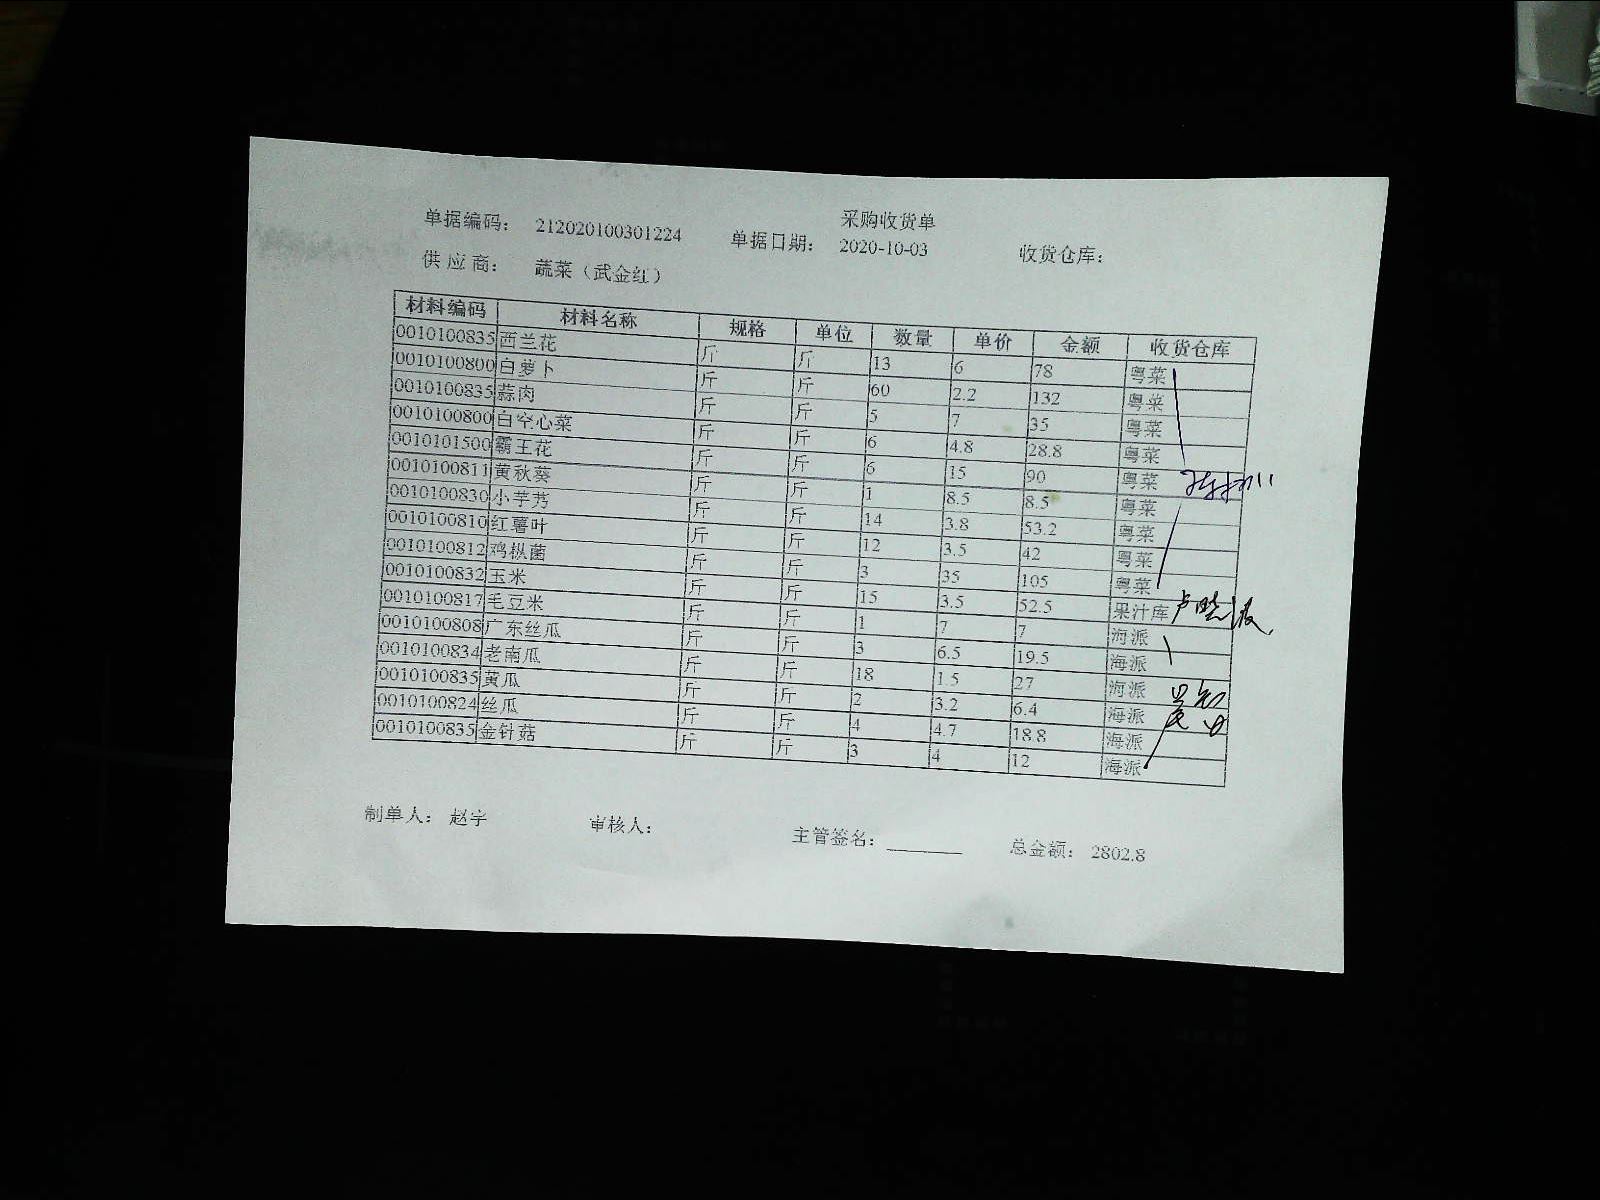 采购收货单
单据编码： 212020100301224 单据日期： 2020-10-03 收货仓库：
供 应 商： 蔬菜（武金红）
材料编码 材料名称 规格 单位 数量 单价 金额 收货仓库
0010100835 西兰花 斤 斤 13 6 78 粤菜
0010100800 白萝卜 斤 斤 60 2.2 132 粤菜
0010100835 蒜肉 斤 斤 5 7 35 粤菜
0010100800 白空心菜 斤 斤 6 4.8 28.8 粤菜
0010101500 霸王花 斤 斤 6 15 90 粤菜
0010100811 黄秋葵 斤 斤 1 8.5 8.5 粤菜
0010100830 小芋艿 斤 斤 14 3.8 53.2 粤菜
0010100810 红薯叶 斤 斤 12 3.5 42 粤菜
0010100812 鸡枞菌 斤 斤 3 35 105 粤菜
0010100832 玉米 斤 斤 15 3.5 52.5 果汁库
0010100817 毛豆米 斤 斤 1 7 7 海派
0010100808 广东丝瓜 斤 斤 3 6.5 19.5 海派
0010100834 老南瓜 斤 斤 18 1.5 27 海派
0010100835 黄瓜 斤 斤 2 3.2 6.4 海派
0010100824 丝瓜 斤 斤 4 4.7 18.8 海派
0010100835 金针菇 斤 斤 3 4 12 海派
制单人： 赵宇 审核人： 主管签名： 总金额： 2802.8